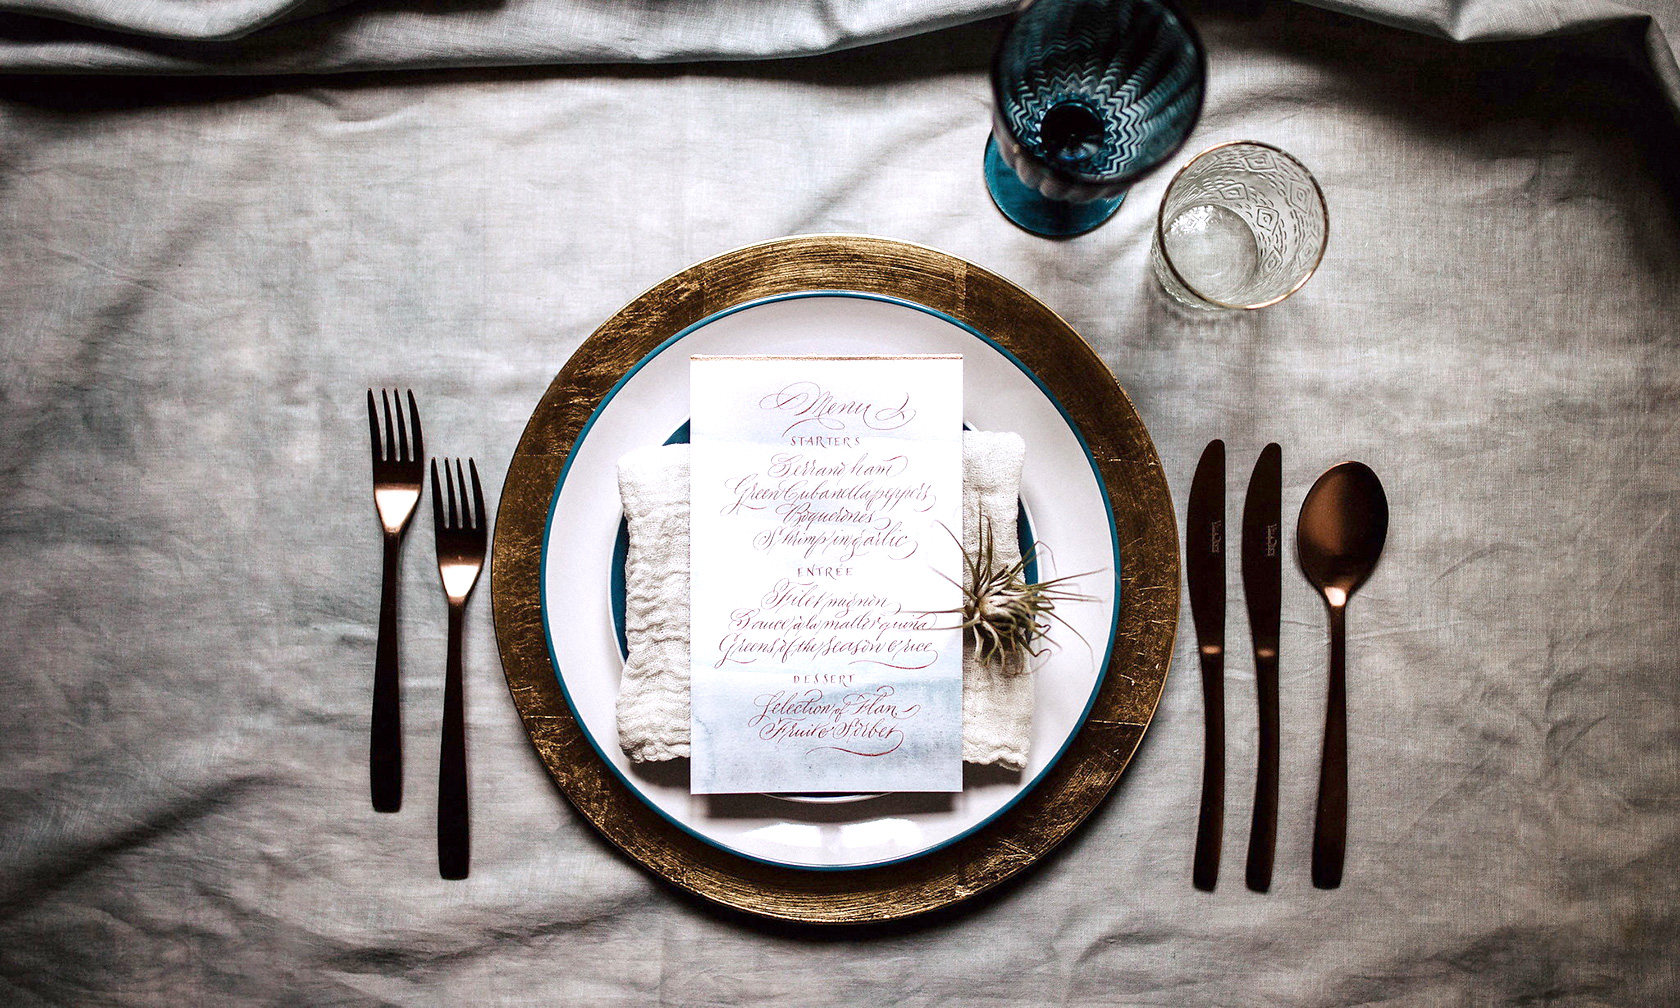 Menu
STARTERS
Serrano ham
Green Cubanella peppers
Boquerones
Shrimp in garlic
ENTRÉE
Filet mignon
Sauce à la mallorquina
Greens of the season & rice
DESSERT
Selection of Flan
Fruit & Sorbet